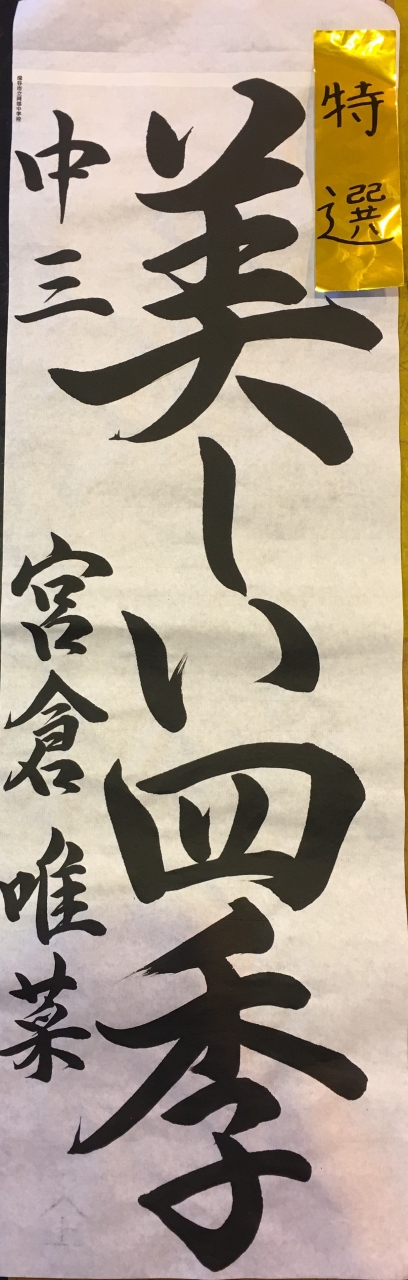 特選
美しい四季
中三 宮倉唯菜